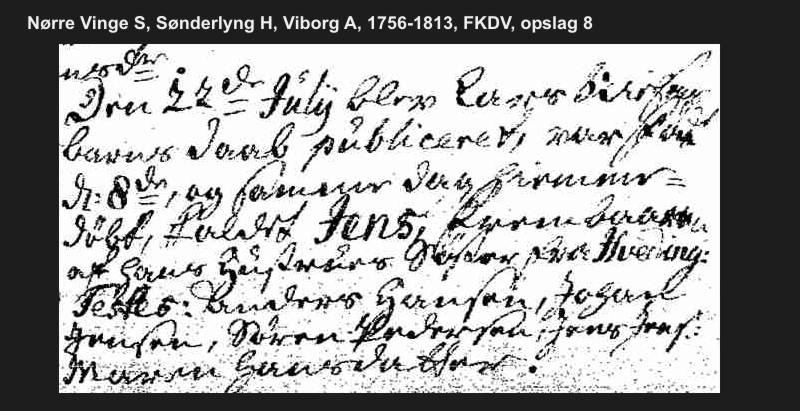 Nørre Vinge S, Sønderlyng H, Viborg A, 1756-1813, FKDV, opslag 8
Den 22de Julij blev Lars
barns daab publiceret, var født
d: 8de, og samme dag hiemme=
døbt, kaldet Jens, frembaaren
af hans Hustrues Søster fra Hvedding:
Testes: Anders Hansen, Johan
Jensen, Søren Pedersen, Jens Jens:
Maren Hansdatter.